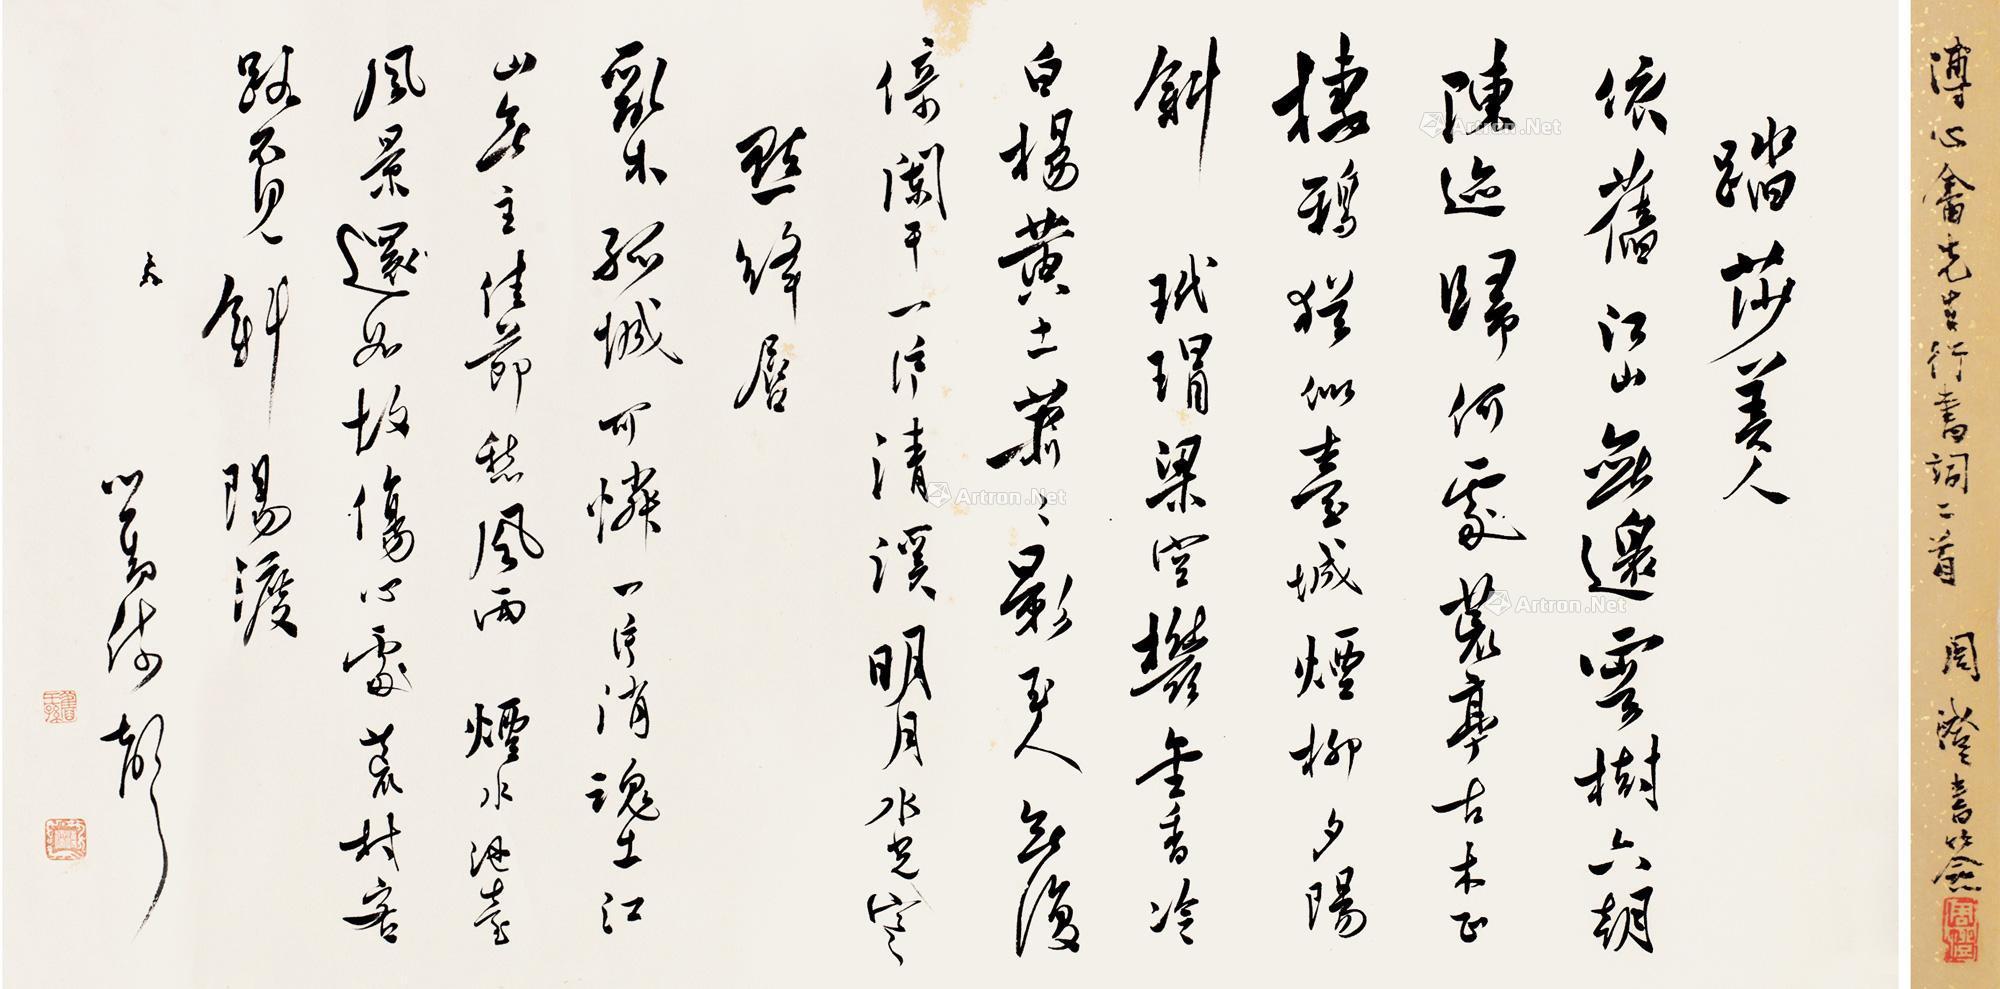 溥心畬先生行書詞二首 周澄書簽
周澄
踏莎美人
依舊江山無邊雲樹六朝
陳迹歸何處荒亭古木正
棲鴉猶似臺城煙柳夕陽
斜 玳瑁梁空鬱金香冷
白楊黃土蕭〻影美人無復
倚闌干一片清溪明月水光寒
點絳脣
木孤城可憐一片消魂土江
山無主佳節愁風雨 煙水池臺
風景還如故傷心處荒村客
路不見斜陽渡
心畬倚聲
Artron.Net
Artron.Net
Artron.Net